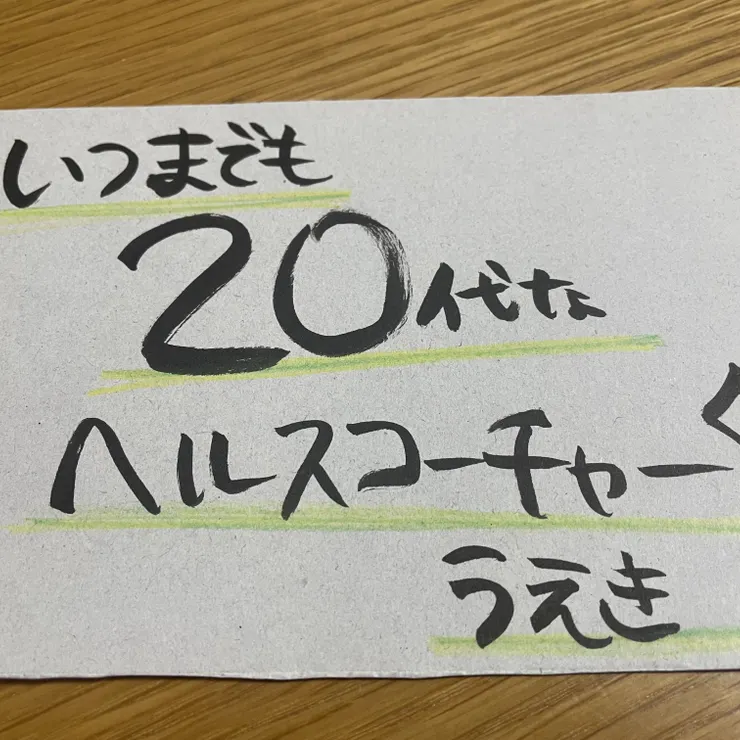 いつまでも
20代な
ヘルスコーチャー
うえき